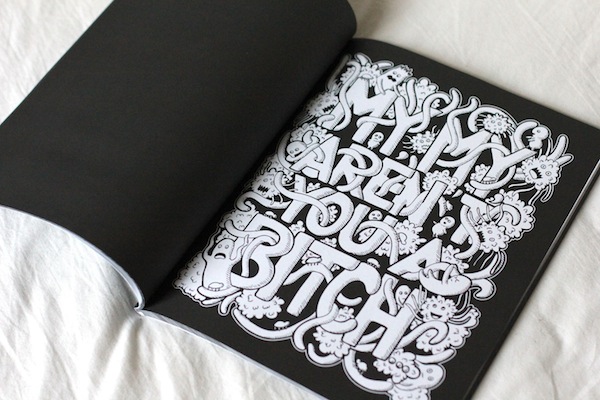 MY, MY
AREN'T
YOU A
BITCH